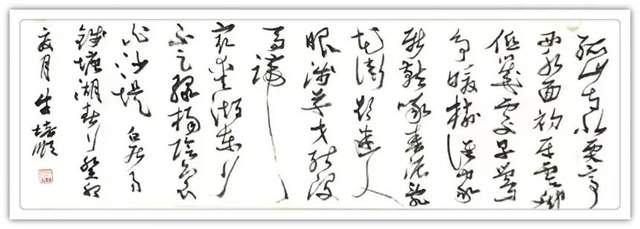 孤山寺北贾亭
西水面初平云脚
低几处早莺
争暖树谁家
新燕啄春泥乱
花渐欲迷人
眼浅草才能没
马蹄
最爱湖东行
不足绿杨阴里
白沙堤 白居易
钱塘湖春行 癸卯
夏月 培顺